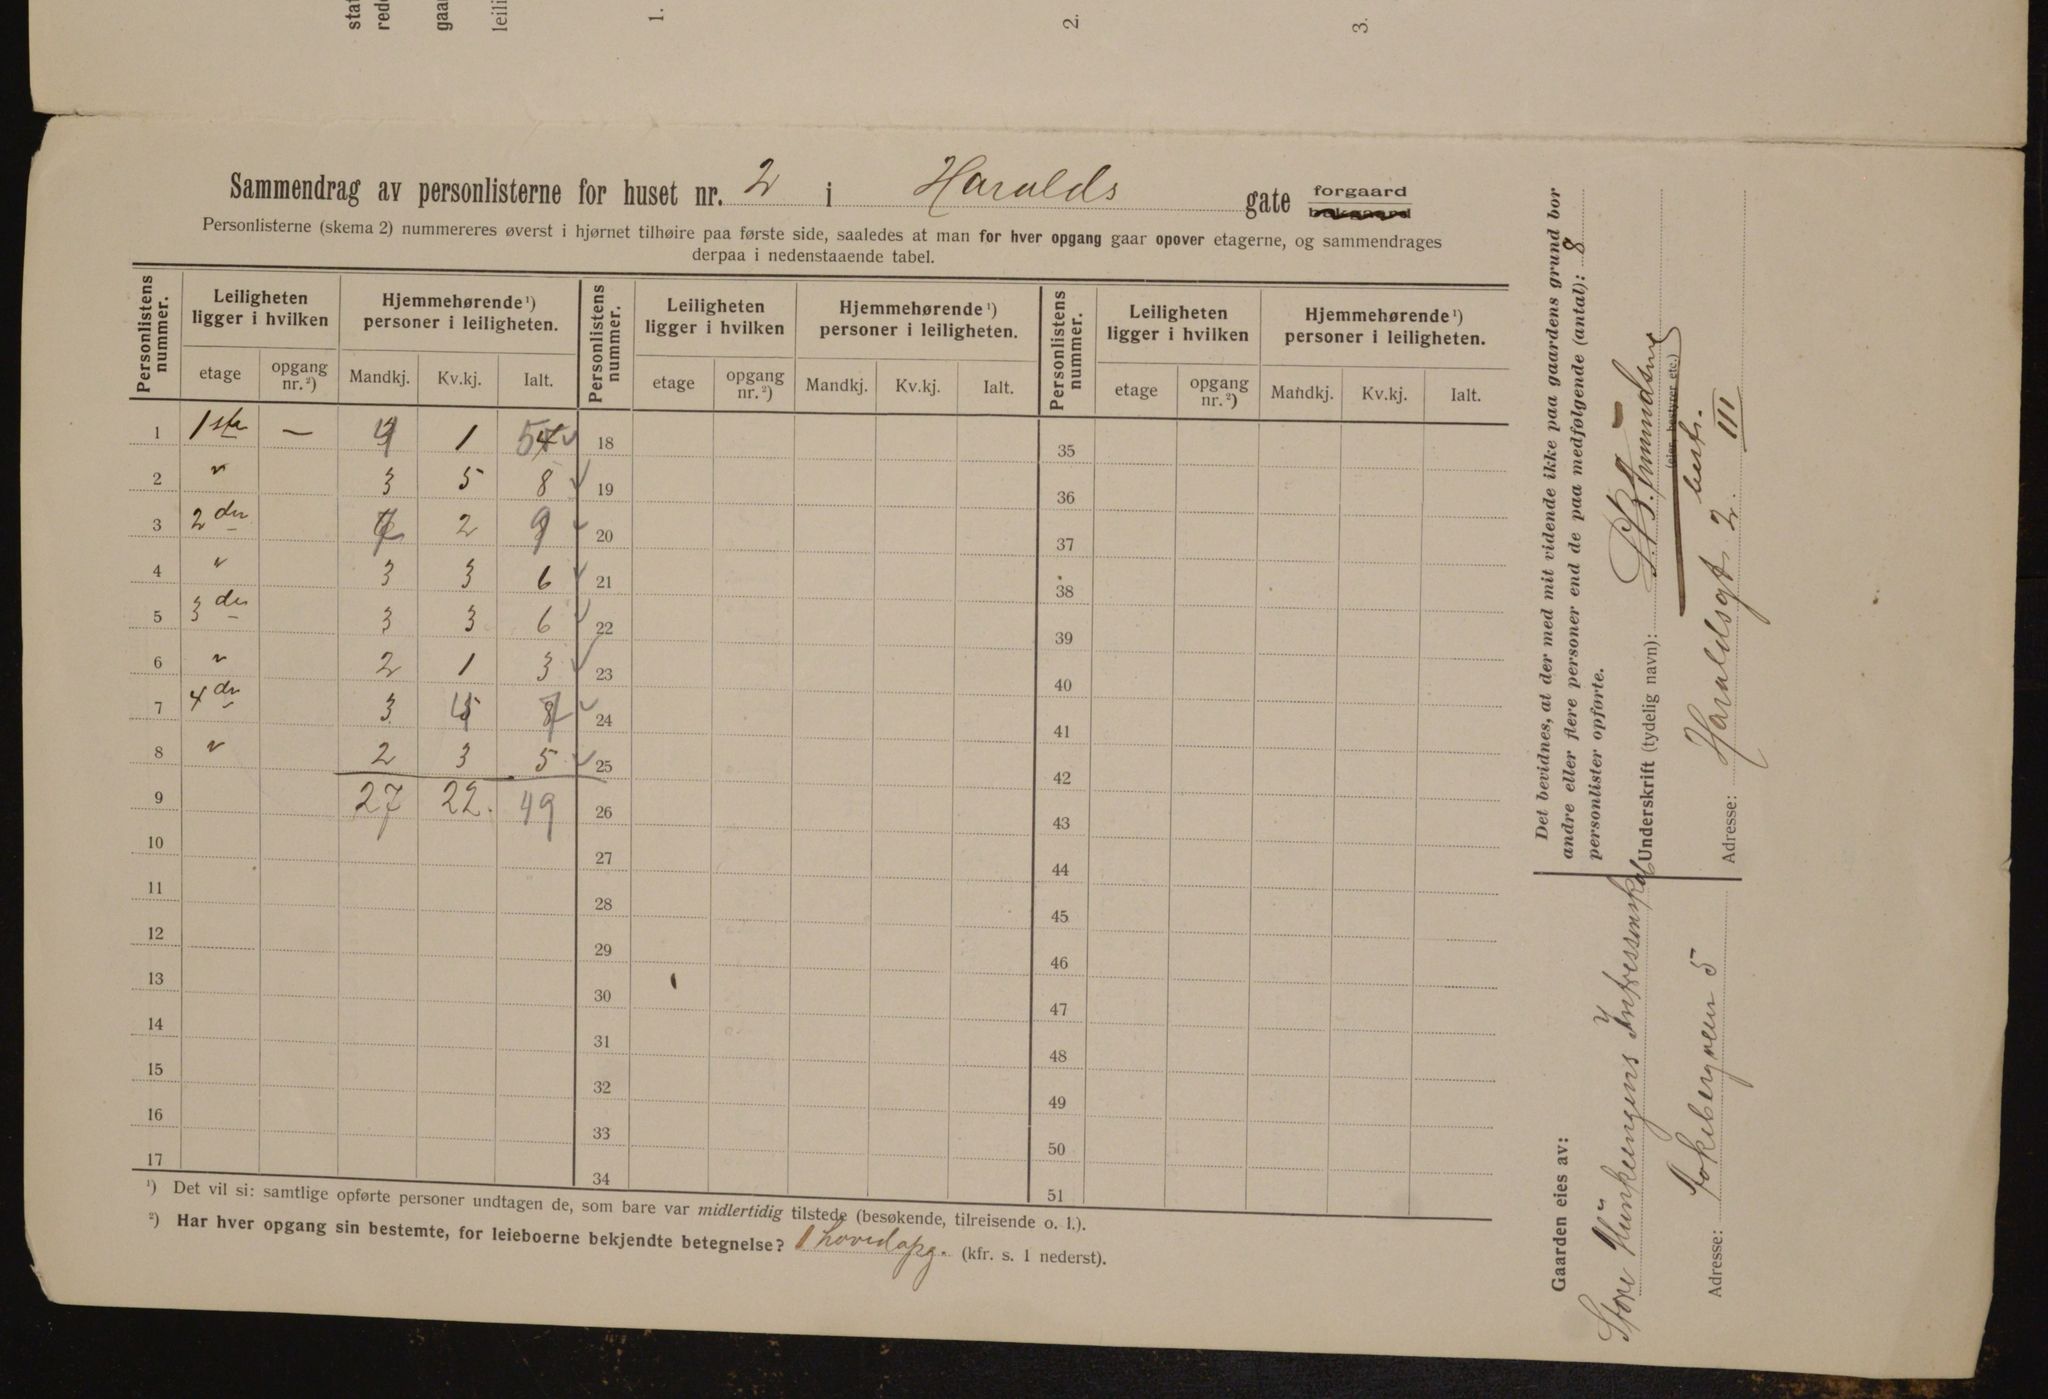 stat
rede
gaar
leili
1.
2.
3.
Sammendrag av personlisterne for huset nr. 2 i Haralds gate forgaard
bakgaard
Personlisterne (skema 2) nummereres øverst i hjørnet tilhøire paa første side, saaledes at man for hver opgang gaar opover etagerne, og sammendrages
derpaa i nedenstaaende tabel.
Personlistens nummer. Leiligheten ligger i hvilken Hjemmehørende ¹) personer i leiligheten. Personlistens nummer. Leiligheten ligger i hvilken Hjemmehørende ¹) personer i leiligheten. Personlistens nummer. Leiligheten ligger i hvilken Hjemmehørende ¹) personer i leiligheten.
etage opgang nr. ²) Mandkj. Kv.kj. Ialt. etage opgang nr. ²) Mandkj. Kv.kj. Ialt. etage opgang nr. ²) Mandkj. Kv.kj. Ialt.
1 1ste — 4 1 5 18 35
2 " 3 5 8 19 36
3 2den 7 2 9 20 37
4 " 3 3 6 21 38
5 3de 3 3 6 22 39
6 " 2 1 3 23 40
7 4de 3 4 7 24 41
8 " 2 3 5 25 42
9 27 22. 49 26 43
10 27 44
11 28 45
12 29 46
13 30 47
14 31 48
15 32 49
16 33 50
17 34 51
¹) Det vil si: samtlige opførte personer undtagen de, som bare var midlertidig tilstede (besøkende, tilreisende o. l.).
²) Har hver opgang sin bestemte, for leieboerne bekjendte betegnelse? 1 hovedopg. (kfr. s. 1 nederst).
Det bevidnes, at der med mit vidende ikke paa gaardens grund bor
andre eller flere personer end de paa medfølgende (antal): 8
personlister opførte.
Underskrift (tydelig navn): Amundsen
(eier, bestyrer etc.)
best.
Adresse: Haraldsgt. 2. III
Gaarden eies av:
Store Intressentskab
Adresse: 5